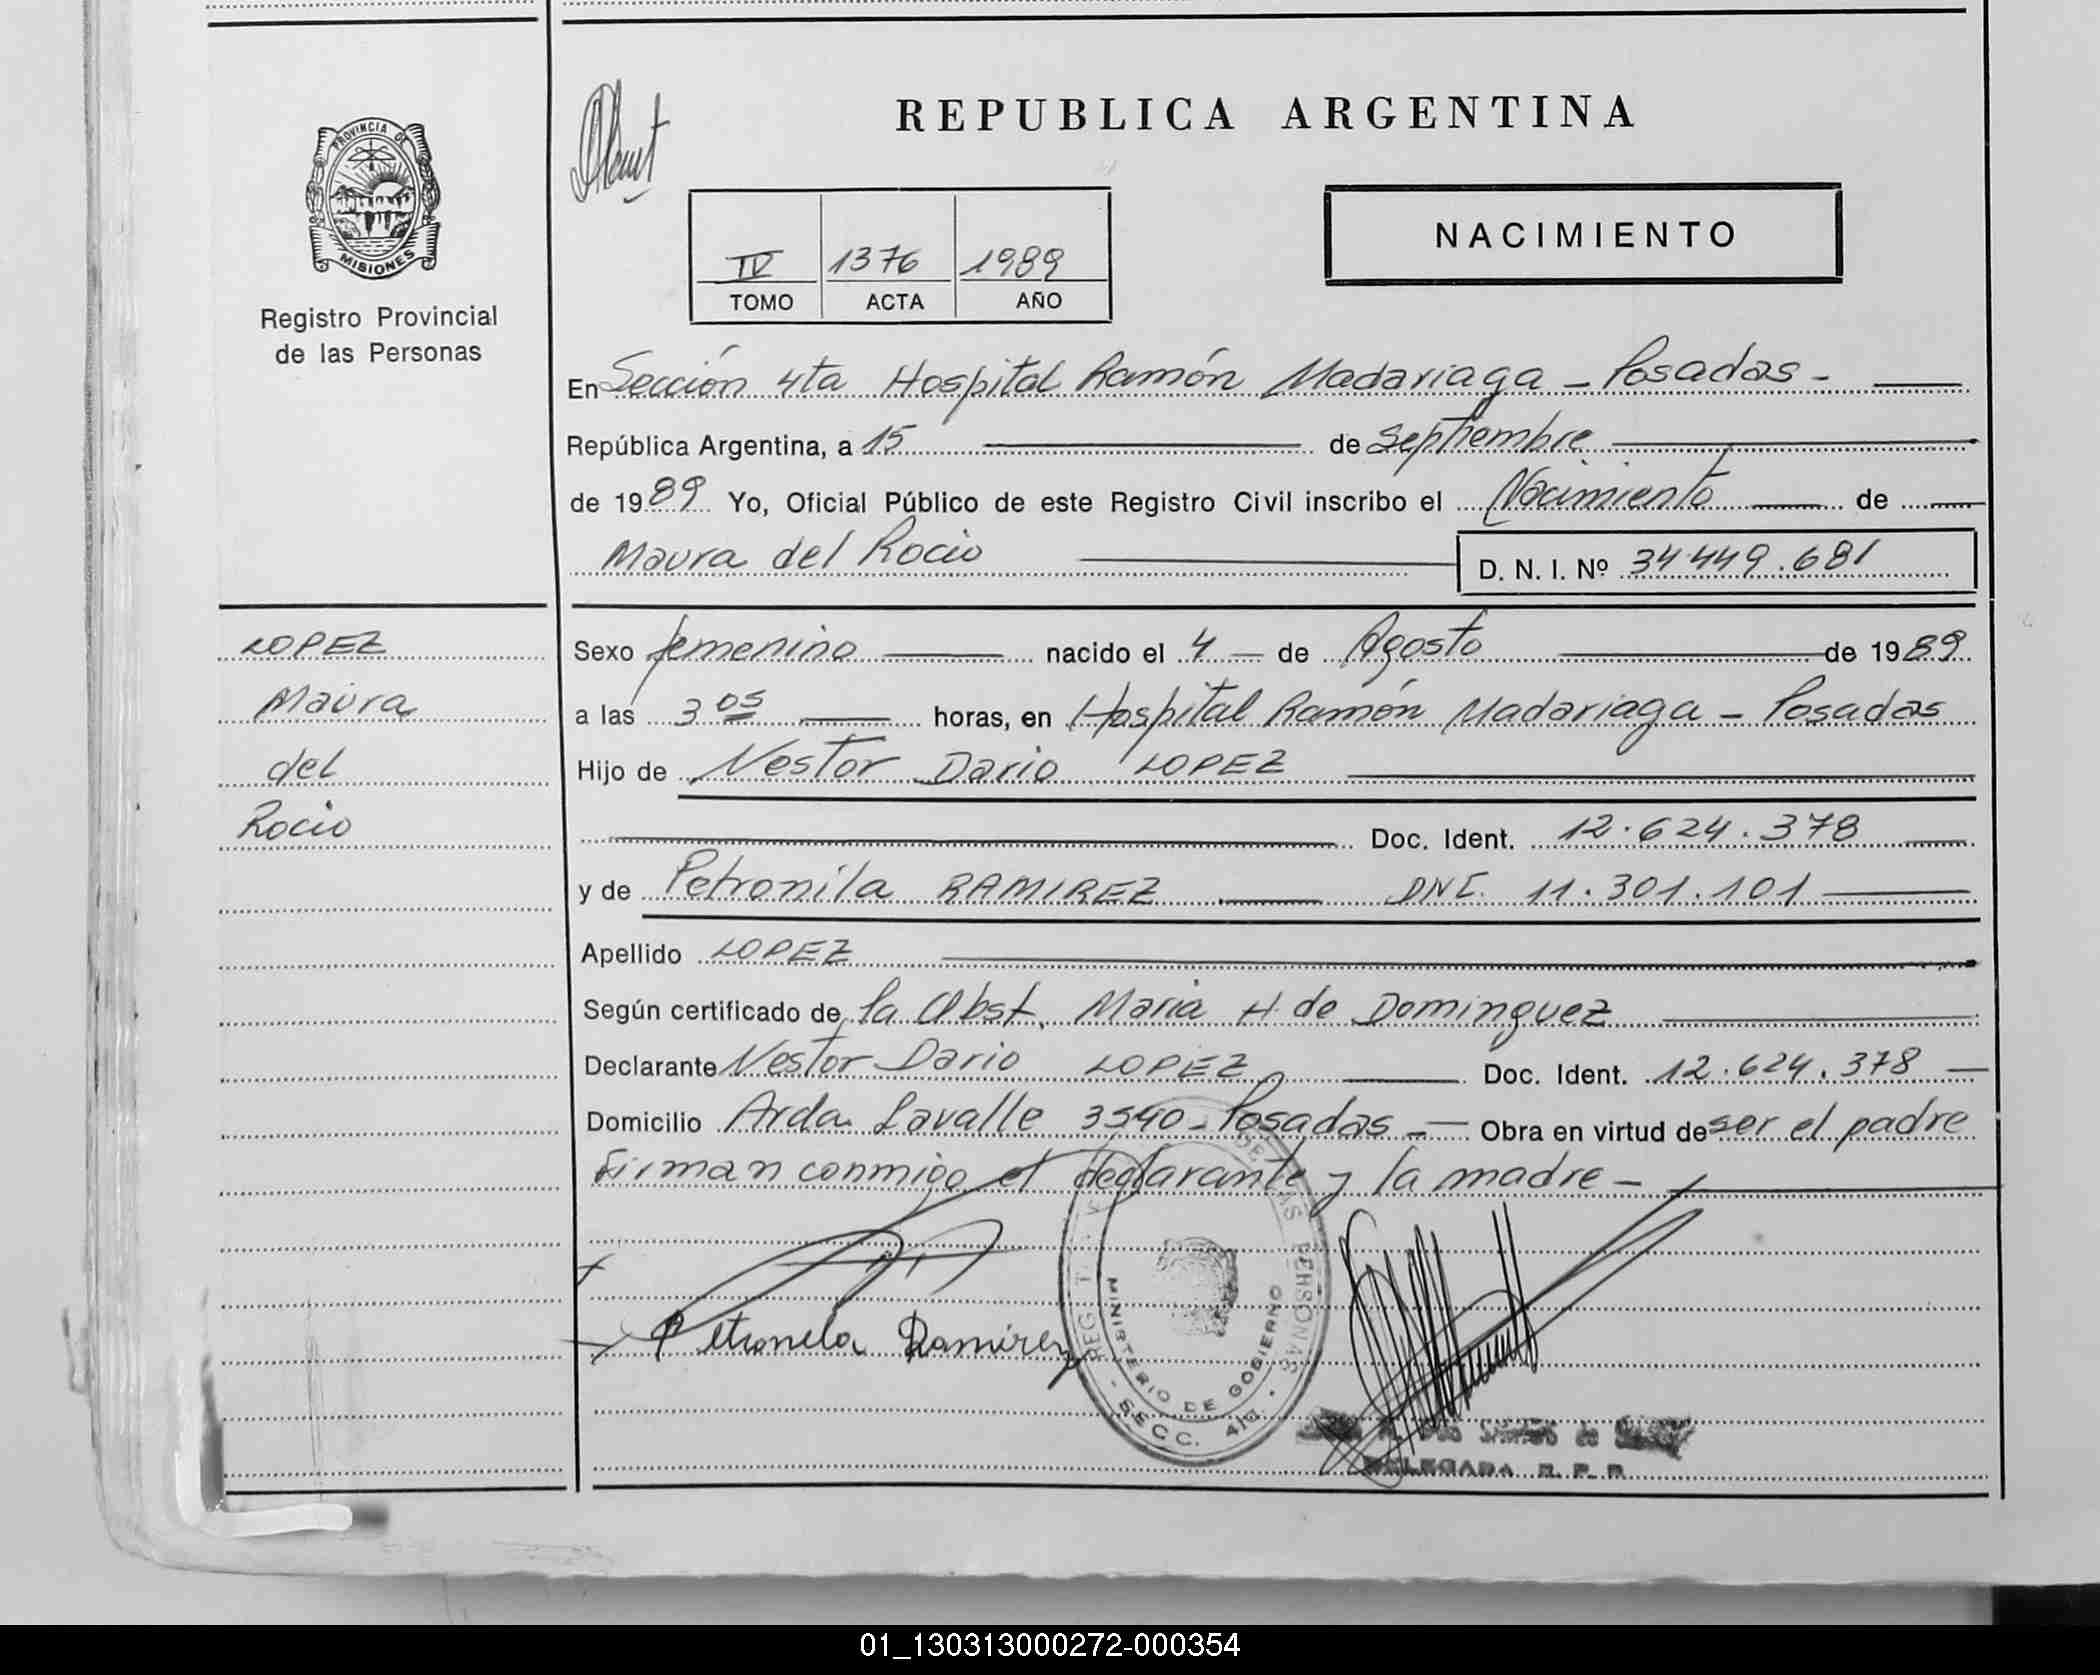 REPUBLICA ARGENTINA
PROVINCIA DE
MISIONES
Registro Provincial
de las Personas
IV 1376 1989
TOMO ACTA AÑO
NACIMIENTO
En Sección 4ta Hospital Ramón Madariaga - Posadas -
República Argentina, a 15 de Septiembre
de 1989 Yo, Oficial Público de este Registro Civil inscribo el Nacimiento de
Maura del Rocio D. N. I. Nº 34.449.681
LOPEZ
Maura
del
Rocio
Sexo femenino nacido el 4 de Agosto de 1989
a las 3 05 horas, en Hospital Ramón Madariaga - Posadas
Hijo de Nestor Dario LOPEZ
Doc. Ident. 12.624.378
y de Petronila RAMIREZ DNI. 11.301.101
Apellido LOPEZ
Según certificado de la Obst. Maria H. de Dominguez
Declarante Nestor Dario LOPEZ Doc. Ident. 12.624.378
Domicilio Avda. Lavalle 3540 - Posadas - Obra en virtud de ser el padre
Firman conmigo el declarante y la madre -
Petronila Ramirez
MINISTERIO DE GOBIERNO
SECC. 4ta.
DELEGADA R. P. P.
01_130313000272-000354